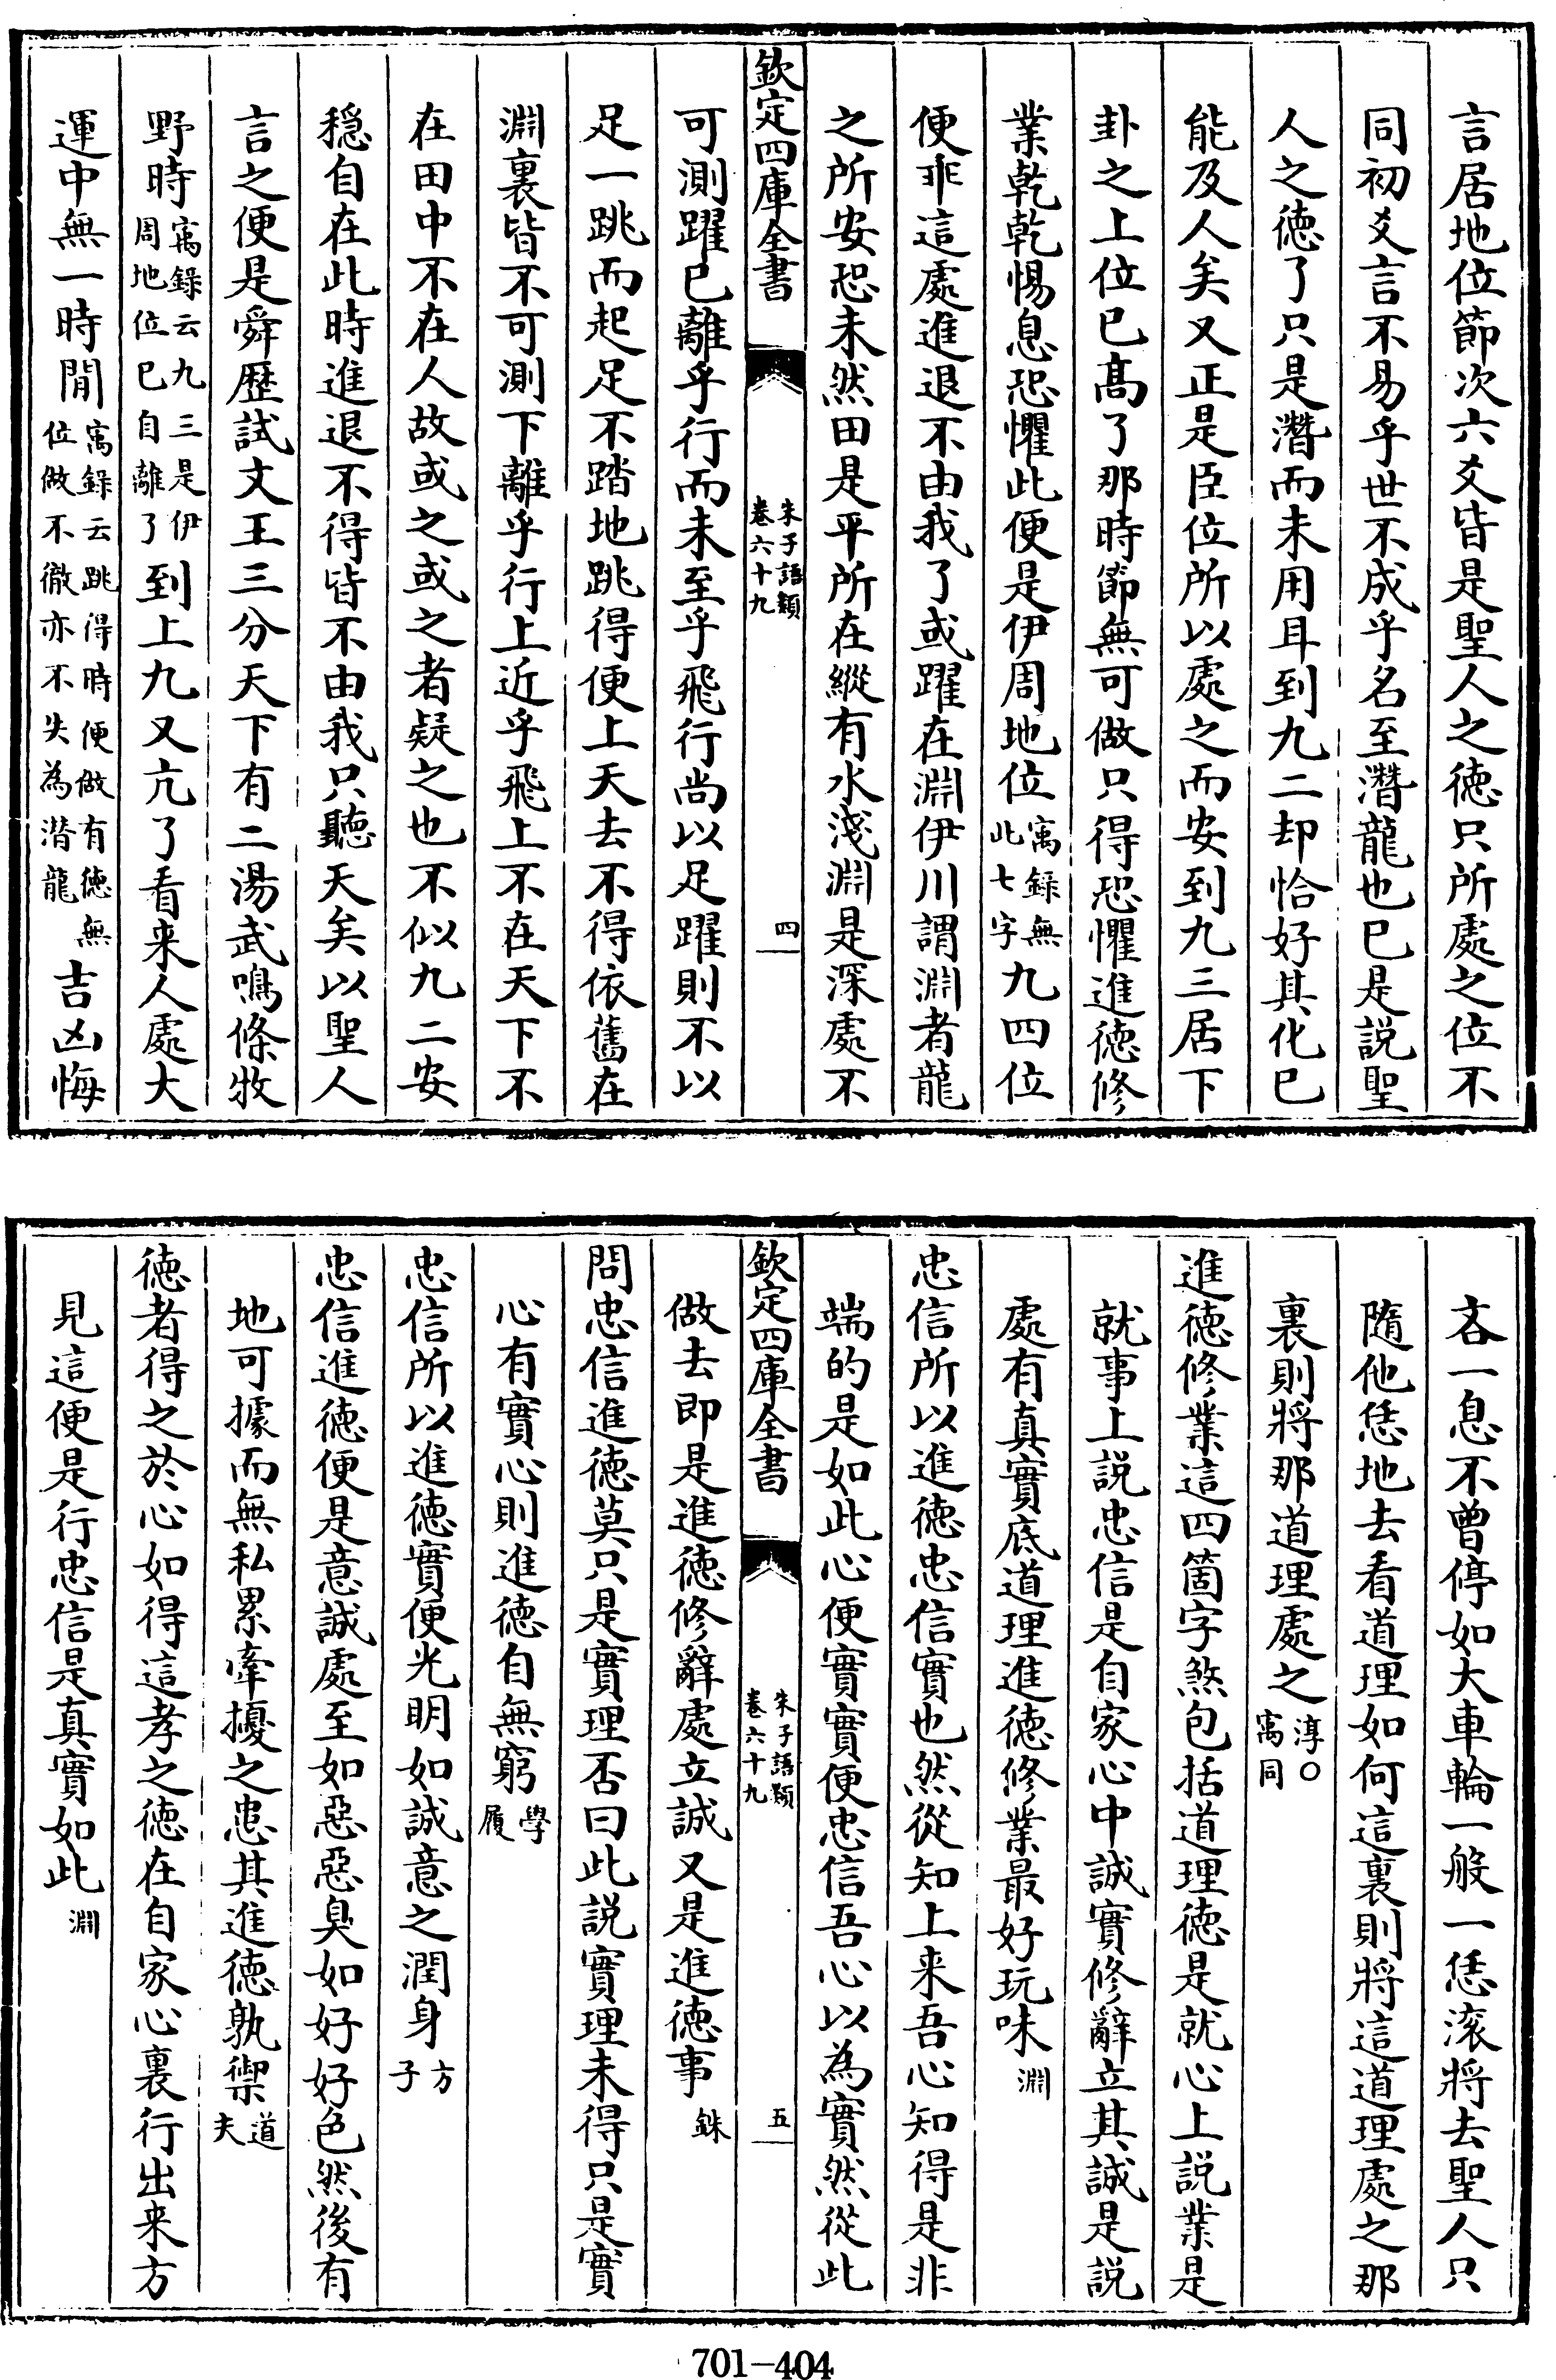 言居地位節次六爻皆是聖人之徳只所處之位不
同初爻言不易乎世不成乎名至潛龍也已是説聖
人之徳了只是潛而未用耳到九二却恰好其化已
能及人矣又正是臣位所以處之而安到九三居下
卦之上位已髙了那時節無可做只得恐懼進徳修
業乾乾惕息恐懼此便是伊周地位寓録無此七字九四位
便乖這處進退不由我了或躍在淵伊川謂淵者龍
之所安恐未然田是平所在縱有水淺淵是深處不
欽定四庫全書
朱子語類
卷六十九
四
可測躍已離乎行而未至乎飛行尚以足躍則不以
足一跳而起足不踏地跳得便上天去不得依舊在
淵裏皆不可測下離乎行上近乎飛上不在天下不
在田中不在人故或之或之者疑之也不似九二安
穏自在此時進退不得皆不由我只聽天矣以聖人
言之便是舜歴試文王三分天下有二湯武鳴條牧
野時寓録云九三是伊周地位已自離了到上九又亢了看来人處大
運中無一時閒寓録云跳得時便做有徳無位做不徹亦不失為潛龍吉凶悔
吝一息不曾停如大車輪一般一恁滚將去聖人只
隨他恁地去看道理如何這裏則將這道理處之那
裏則將那道理處之淳○寓同
進徳修業這四箇字煞包括道理徳是就心上説業是
就事上説忠信是自家心中誠實修辭立其誠是説
處有真實底道理進徳修業最好玩味淵
忠信所以進徳忠信實也然從知上来吾心知得是非
端的是如此心便實實便忠信吾心以為實然從此
欽定四庫全書
朱子語類
卷六十九
五
做去即是進徳修辭處立誠又是進徳事銖
問忠信進徳莫只是實理否曰此説實理未得只是實
心有實心則進徳自無窮學履
忠信所以進徳實便光明如誠意之潤身方子
忠信進徳便是意誠處至如惡惡臭如好好色然後有
地可據而無私累牽擾之患其進徳孰禦道夫
徳者得之於心如得這孝之徳在自家心裏行出来方
見這便是行忠信是真實如此淵
701-404